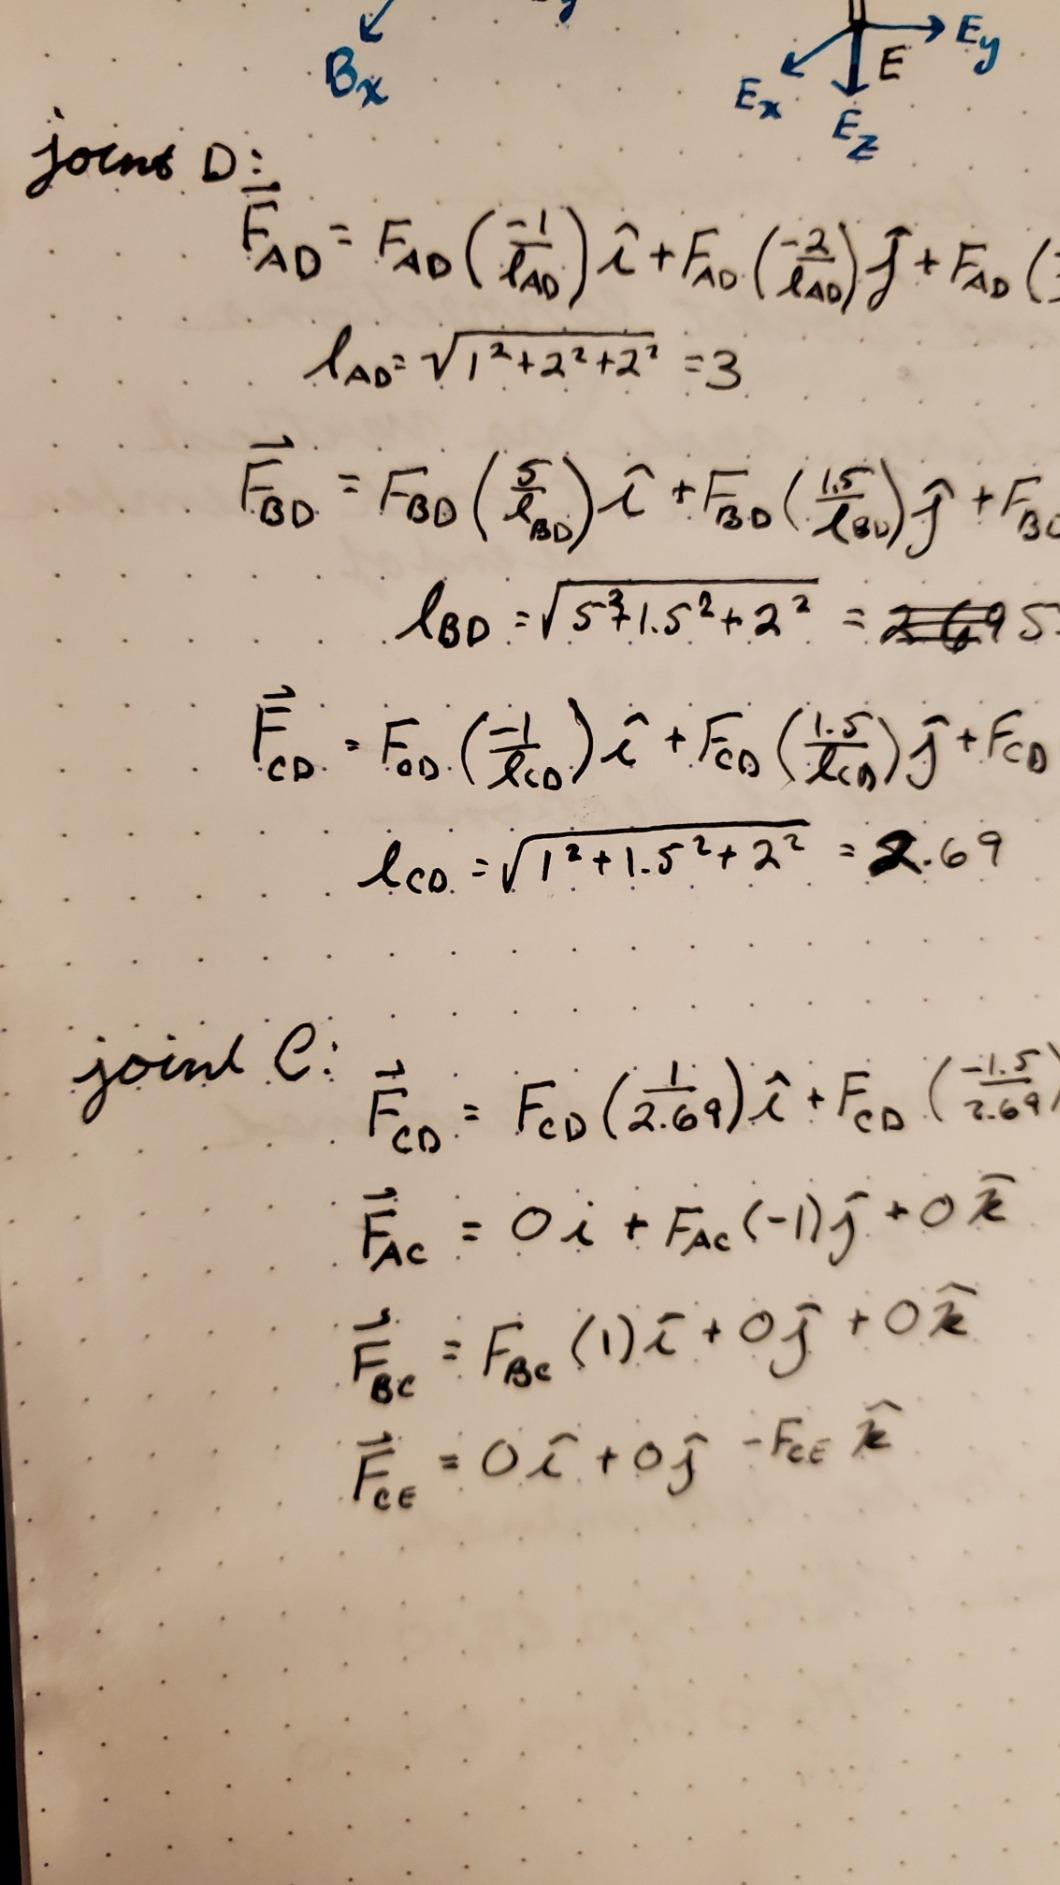 Bx Ex E Ey
Ez
joint D:
F⃗AD = FAD (-1/lAD) î + FAD (-2/lAD) ĵ + FAD (
lAD = √(1² + 2² + 2²) = 3
F⃗BD = FBD (5/lBD) î + FBD (1.5/lBD) ĵ + FBD
lBD = √(5² + 1.5² + 2²) = 5
F⃗CD = FCD (-1/lCD) î + FCD (1.5/lCD) ĵ + FCD
lCD = √(1² + 1.5² + 2²) = 2.69
joint C:
F⃗CD = FCD (1/2.69) î + FCD (-1.5/2.69)
F⃗AC = 0i + FAC (-1) ĵ + 0 k̂
F⃗BC = FBC (1) î + 0 ĵ + 0 k̂
F⃗CE = 0 î + 0 ĵ - FCE k̂